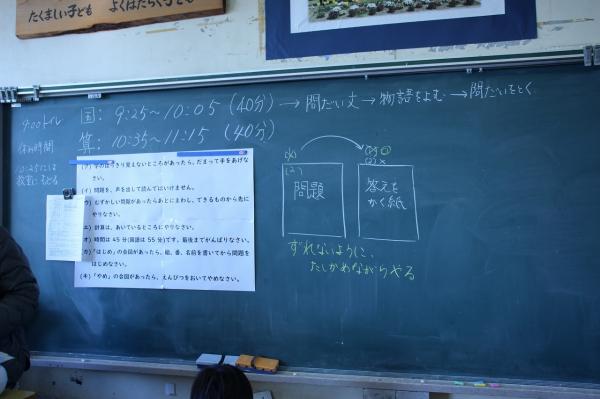 たくましい子ども よくはたらく子ども
9:00トイレ
休み時間
10:25には
教室に
国:9:25～10:05(40分)→問だい文→物語をよむ→問だいをとく
算:10:35～11:15(40分)
(ア)字のはっきり見えないところがあったら、だまって手をあげなさい。
(イ)問題を、声を出して読んではいけません。
(ウ)むずかしい問題があったらあとにまわし、できるものから先にやりなさい。
(エ)計算は、あいているところにやりなさい。
(オ)時間は45分(国語は55分)です。最後までがんばりなさい。
(カ)「はじめ」の合図があったら、組、番、名前を書いてから問題をはじめなさい。
(キ)「やめ」の合図があったら、えんぴつをおいてやめなさい。
(1)
(2)
問題
(1)
(2)×
答えを
かく紙
ずれないように、
たしかめながらやる